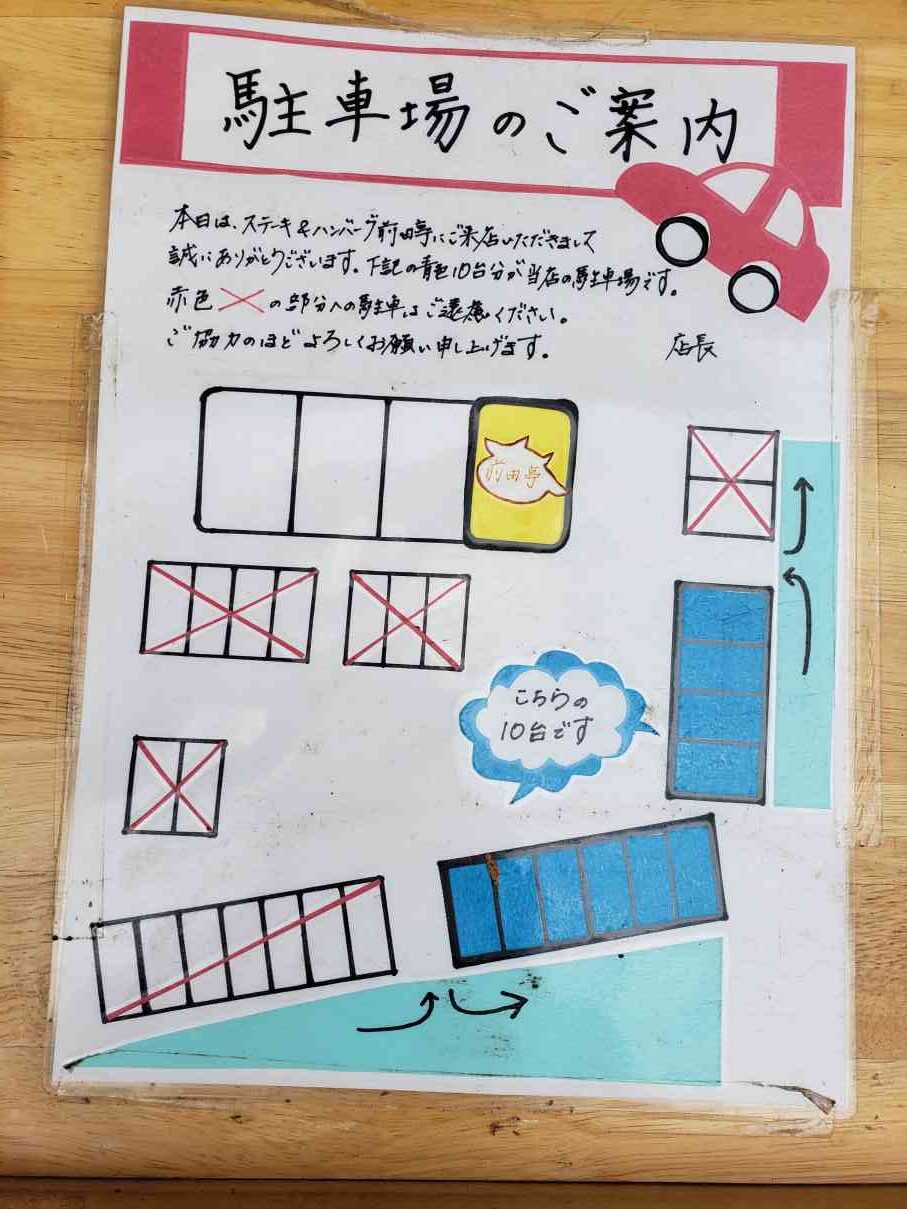 駐車場のご案内
本日は、ステーキ&ハンバーグ前田亭にご来店いただきまして
誠にありがとうございます。下記の青色10台分が当店の駐車場です。
赤色 の部分への駐車はご遠慮ください。
ご協力のほどよろしくお願い申し上げます。 店長
前田亭
こちらの
10台です